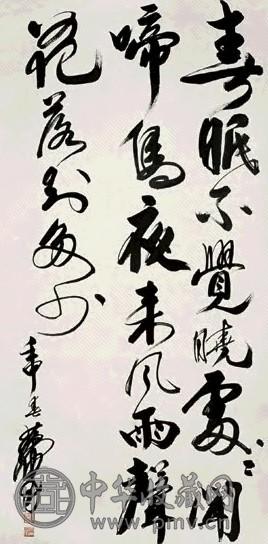 春眠不覺曉處〻聞
啼鳥夜来风雨聲
花落知多少
中华收藏网
www.pmv.cn